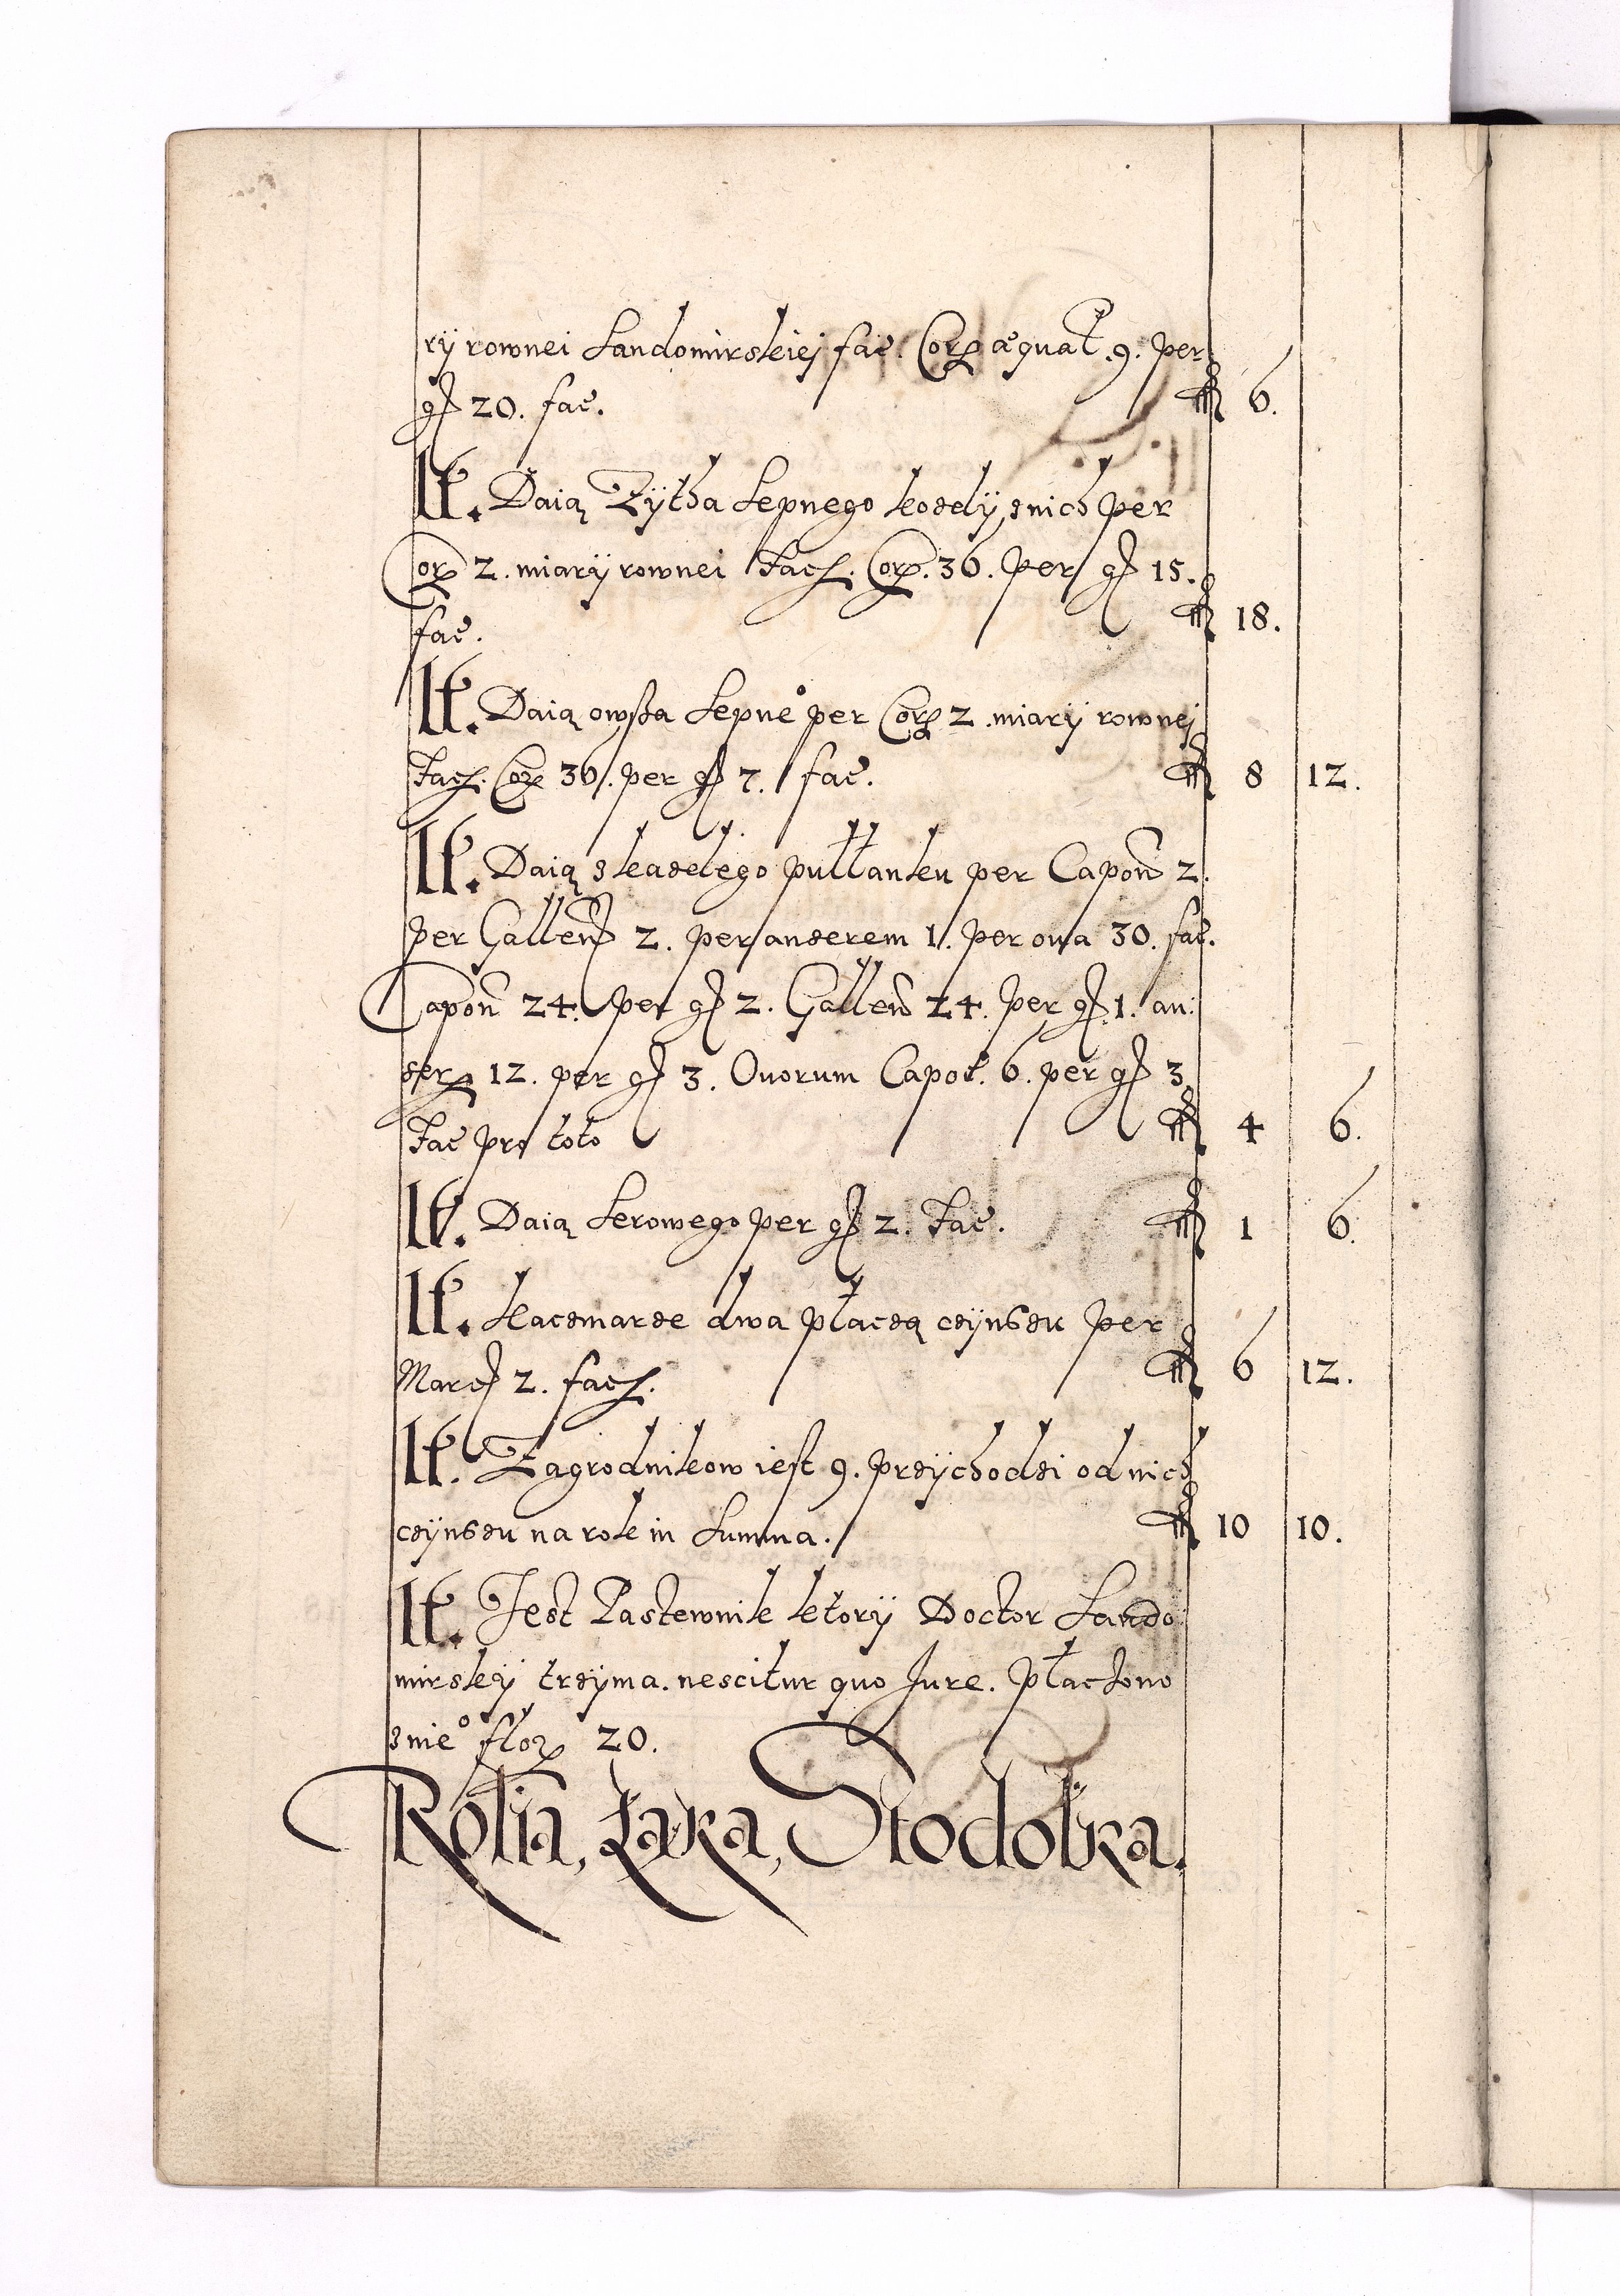 rÿ rownei Sandomirskiej fac. Corp æqual .9. per
gr 20. fac. fl 6.
It. Daią Zÿtha Sepnego kozdÿ znich per
Cor 2. miarÿ rownei Fac. Cor. 36. per gr 15.
fac. fl 18.
It. Daią owssa Sepne° per Cor 2. miarÿ rownej
Fac. Cor 36. per gr 7. fac. fl 8 12.
It. Daią z kazdego pullanku per Capon 2.
per Gallen 2. per anserem 1. per oua 30. fac.
Capon 24. per gr 2. Gallen 24. per gr 1. an:
ser 12. per gr 3. Ouorum Capoc. 6. per gr 3
Fac pro toto fl 4 6.
It. Daią Serowego per gr 2. Fac. fl 1 6.
It. Kaczmarze dwa płaczą czÿnszu per
Marc 2. fac. fl 6 12.
It. Zagrodnikow iest 9. przÿchodzi od nich
czÿnszu na rok in Summa. fl 10 10.
It. Jest Pastewnik ktorÿ Doctor Sando
mirskÿ trzÿma. nescitur quo Jure. płaczono
znie° flor 20.
Rolia, Łąka, Stodołka.